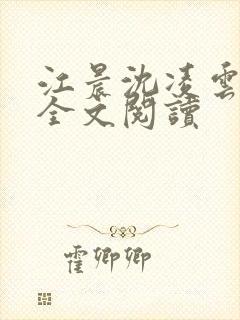 江晨沈凌雲
全文閱讀
霍卿卿